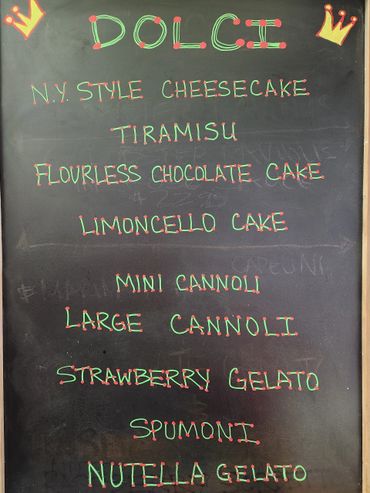 DOLCI
N.Y. STYLE CHEESECAKE
TIRAMISU
FLOURLESS CHOCOLATE CAKE
LIMONCELLO CAKE
MINI CANNOLI
LARGE CANNOLI
STRAWBERRY GELATO
SPUMONI
NUTELLA GELATO